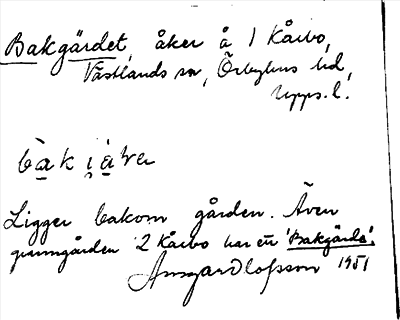 Bakgärdet, åker å 1 Kårbo,
Västlands sn, Örbyhus hd,
Upps. l.
Ligger bakom gården. Även
granngården 2 Kårbo har en "Bakgärda".
Ansgar Olofsson 1951